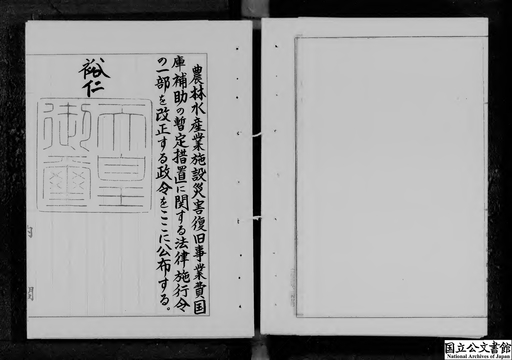 農林水産業施設災害復旧事業費国
庫補助の暫定措置に関する法律施行令
の一部を改正する政令をここに公布する。
裕仁
天皇
御璽
国立公文書館
National Archives of Japan